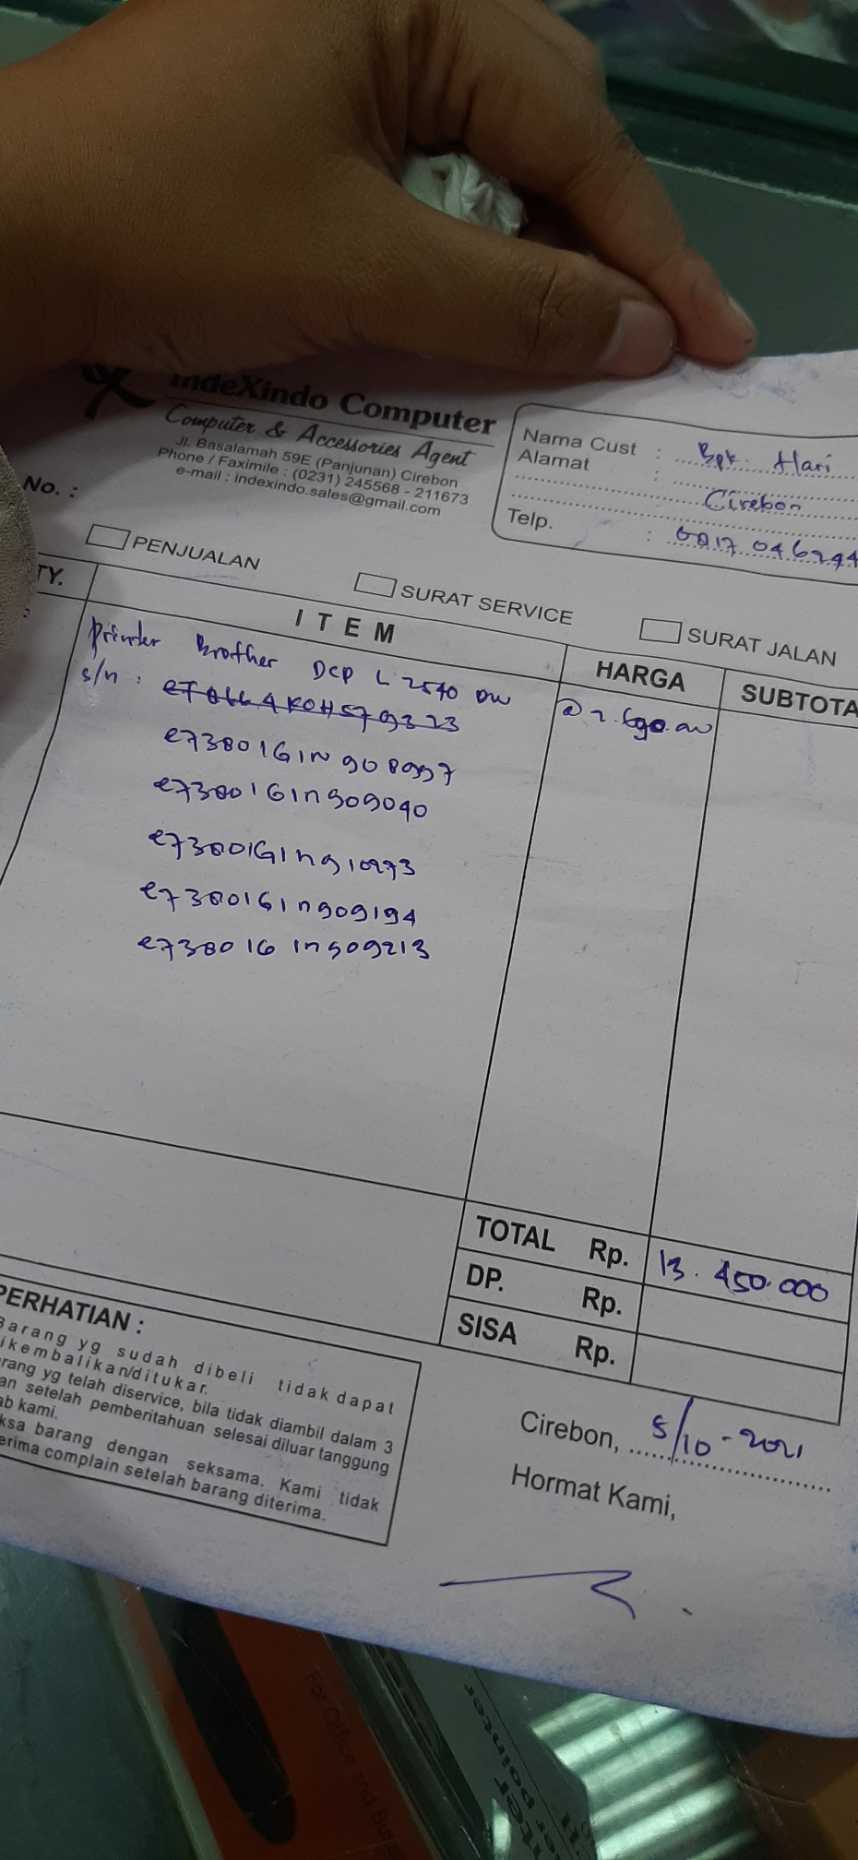 IndeXindo Computer
Computer & Accessories Agent
Jl. Basalamah 59E (Panjunan) Cirebon
Phone / Faximile : (0231) 245568 - 211673
e-mail : indexindo.sales@gmail.com
No. :
Nama Cust : Bpk. Hari
Alamat :
Cirebon
Telp. :
PENJUALAN
SURAT SERVICE
SURAT JALAN
TY.
ITEM
HARGA
SUBTOTA
Printer Brother DCP L 2540 DW
@ 2.690.00
s/n :
e73801G1N908997
e73801G1n909040
e73801G1n910973
e73801G1n909194
e73801G1n909213
TOTAL Rp. 13.450.000
DP. Rp.
SISA Rp.
PERHATIAN :
Barang yg sudah dibeli tidak dapat
ikembalikan/ditukar.
rang yg telah diservice, bila tidak diambil dalam 3
an setelah pemberitahuan selesai diluar tanggung
ab kami.
ksa barang dengan seksama. Kami tidak
erima complain setelah barang diterima.
Cirebon, 5/10-2021
Hormat Kami,
For Office and Bus